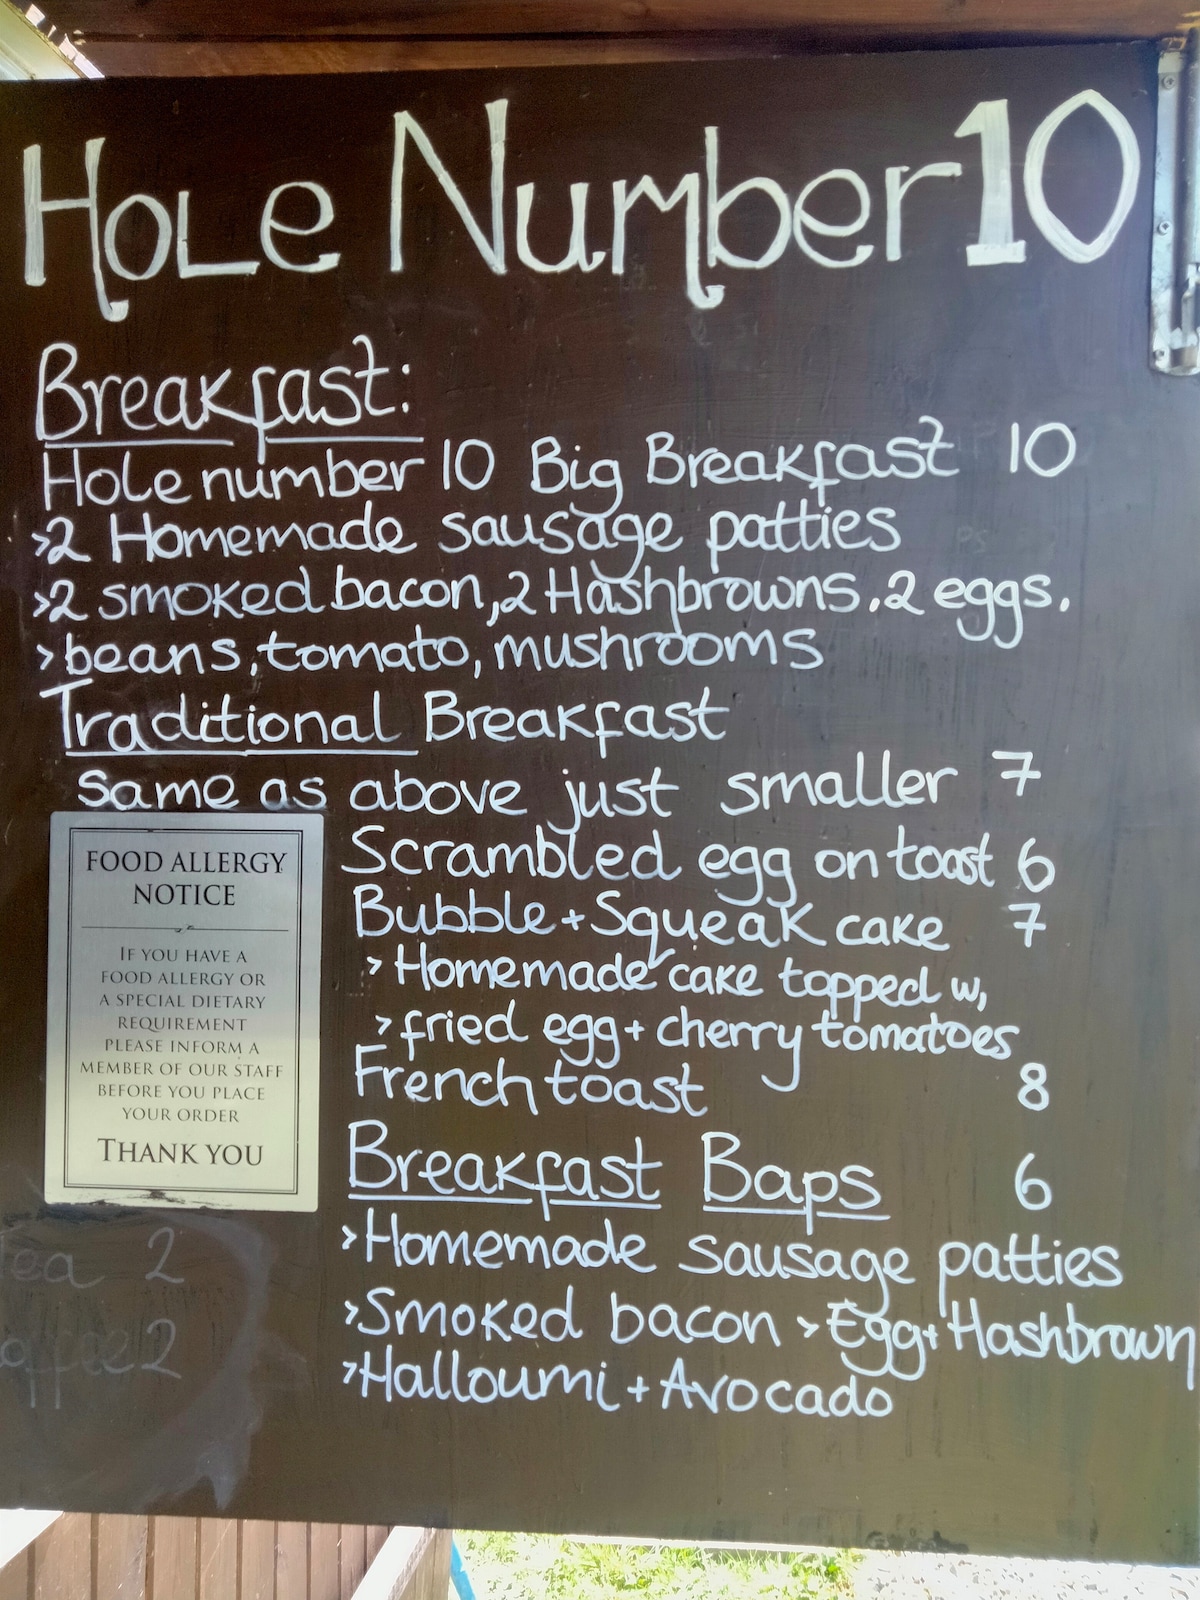 Hole Number 10
Breakfast:
Hole number 10 Big Breakfast 10
>2 Homemade sausage patties
>2 smoked bacon, 2 Hashbrowns. 2 eggs.
>beans, tomato, mushrooms
Traditional Breakfast
same as above just smaller 7
Scrambled egg on toast 6
Bubble + Squeak cake 7
>Homemade cake topped w,
>fried egg + cherry tomatoes
French toast 8
Breakfast Baps 6
>Homemade sausage patties
>Smoked bacon >Egg + Hashbrown
>Halloumi + Avocado
FOOD ALLERGY
NOTICE
IF YOU HAVE A
FOOD ALLERGY OR
A SPECIAL DIETARY
REQUIREMENT
PLEASE INFORM A
MEMBER OF OUR STAFF
BEFORE YOU PLACE
YOUR ORDER
THANK YOU
Tea 2
offee 2